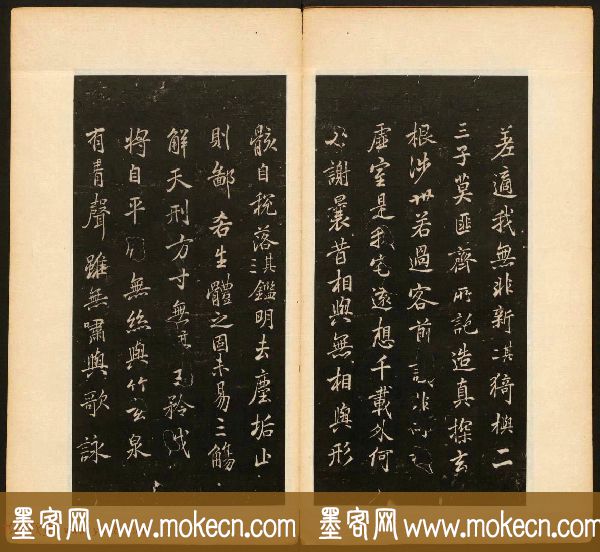 差適我無非新其二猗與二
三子莫匪齊所託造真探玄
根涉世若過客前識非所期
虛室是我宅遠想千載外何
必謝曩昔相與無相與形
骸自稅落其三鑑明去塵垢止
則鄙吝生體之固未易三觴
解天刑方寸無停主矜伐
將自平雖無絲與竹玄泉
有清聲雖無嘯與歌詠
墨客网 www.mokecn.com 墨客网 www.mokecn.com